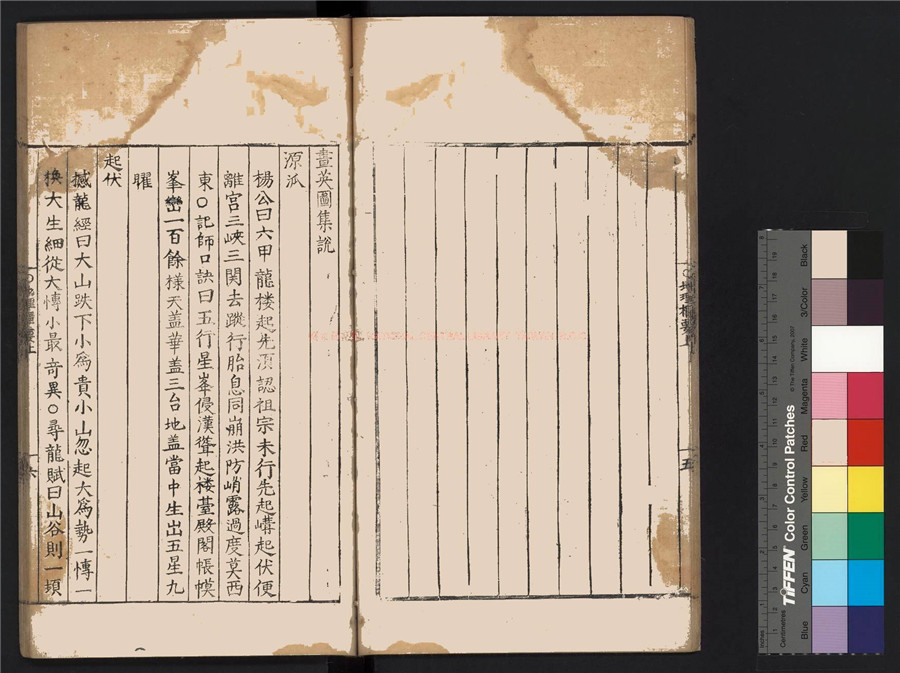 五
畫英圖集說
源派
楊公曰六甲龍楼起先湏認祖宗未行先起嶂起伏便
離宮三峽三関去蹤行胎息同崩洪防峭露過度莫西
東○記師口訣曰五行星峯侵漢聳起楼䑓殿閣帳幙
峯巒一百餘様天盖華盖三台地盖當中生出五星九
曜
起伏
撼龍經曰大山跌下小為貴小山忽起大為勢一愽一
换大生細從大愽小最竒異○尋龍賦曰山谷則一項
六
Centimetres
Inches
TIFFEN Color Control Patches
© The Tiffen Company, 2007
Black
3/Color
White
Magenta
Red
Yellow
Green
Cyan
Blue